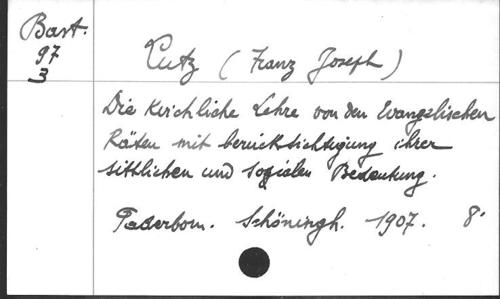 Bast.
97
3
Lutz (Franz Joseph)
Die Kirchliche Lehre von den Evangelischen
Räten mit berücksichtigung ihrer
sittlichen und sozialen Bedeutung.
Paderborn. Schöningh. 1907. 8°